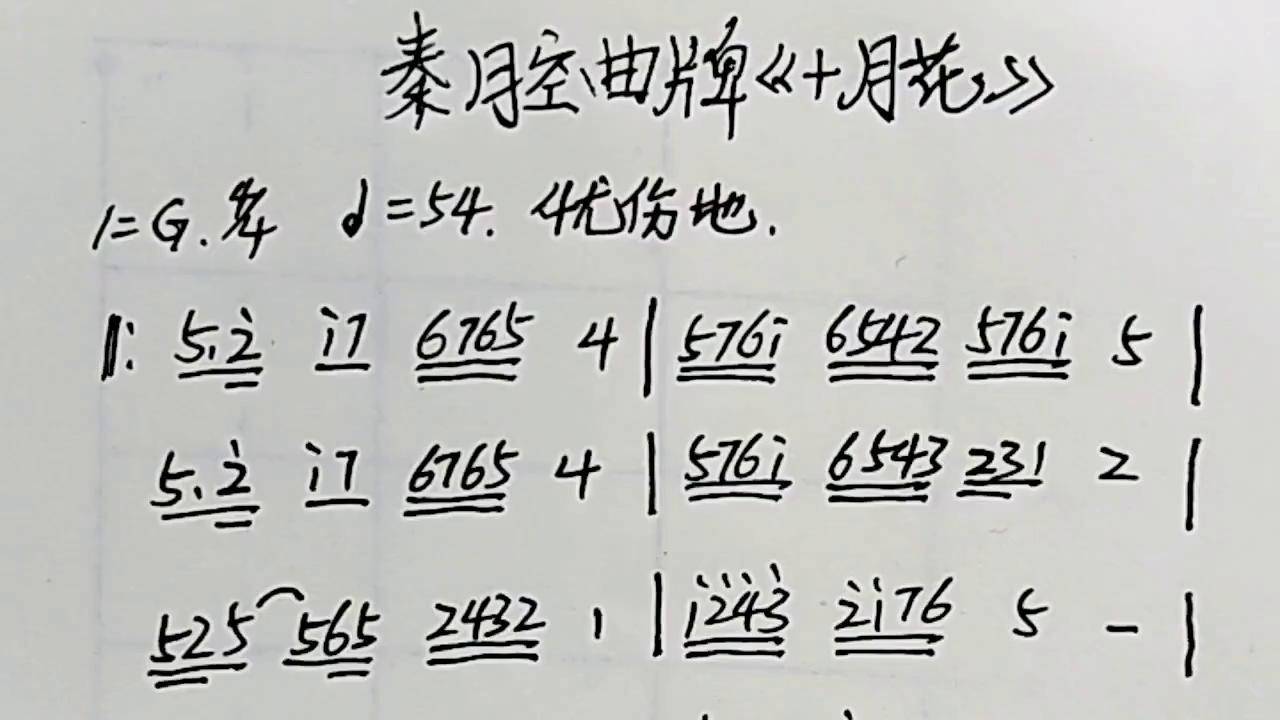 秦月空曲牌《十月花》
1=G. 4/4 d=54. 优伤地.
‖: 5.2̇ i̇7 6765 4 | 576i̇ 6542 576i̇ 5 |
5.2̇ i̇7 6765 4 | 576i̇ 6543 231 2 |
525 565 2432 1 | i̇2̇4̇3̇ 2̇i̇76 5 - |